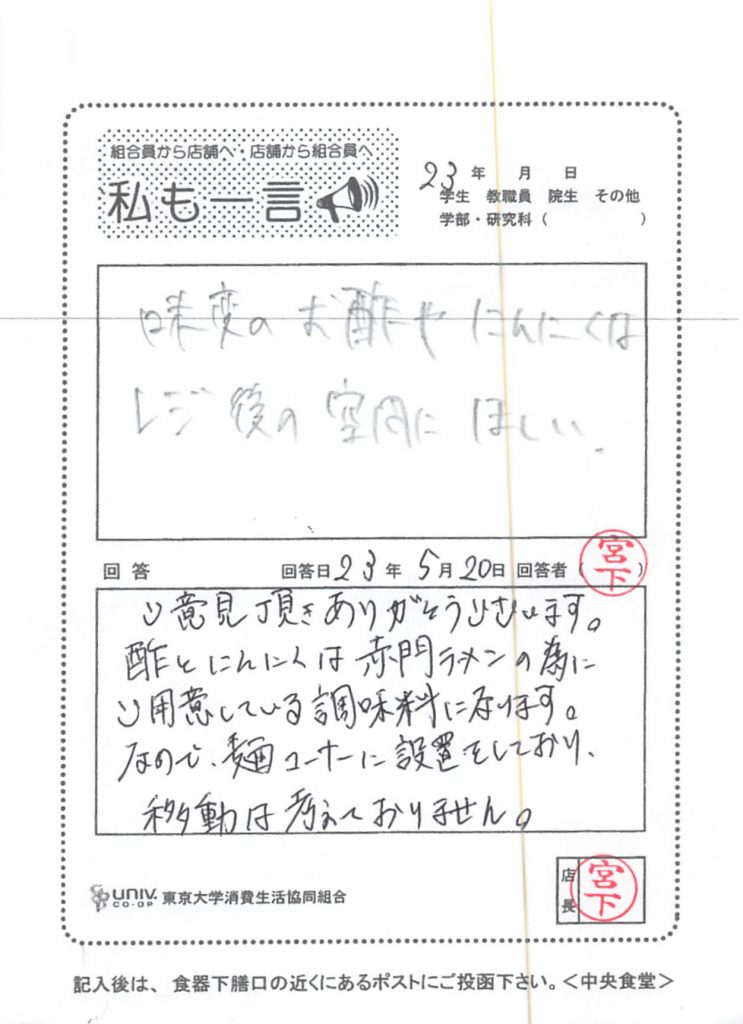 組合員から店舗へ・店舗から組合員へ
私も一言
23年 月 日
学生 教職員 院生 その他
学部・研究科( )
味変のお酢やにんにくは
レジ後の空間にほしい.
回答 回答日23年5月20日 回答者(宮下)
ご意見頂きありがとうございます。
酢とにんにくは赤門ラーメンの為に
ご用意している調味料になります。
なので、麺コーナーに設置をしており、
移動は考えておりません。
店長 宮下
UNIV. CO-OP 東京大学消費生活協同組合
記入後は、食器下膳口の近くにあるポストにご投函下さい。<中央食堂>